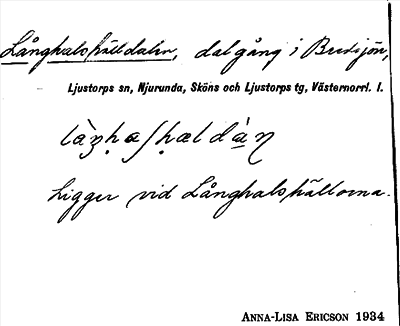 Långhalshälldalen, dalgång i Bredsjön,
Ljustorps sn, Njurunda, Sköns och Ljustorps tg, Västernorrl. l.
Ligger vid Långhalshällorna.
ANNA-LISA ERICSON 1934